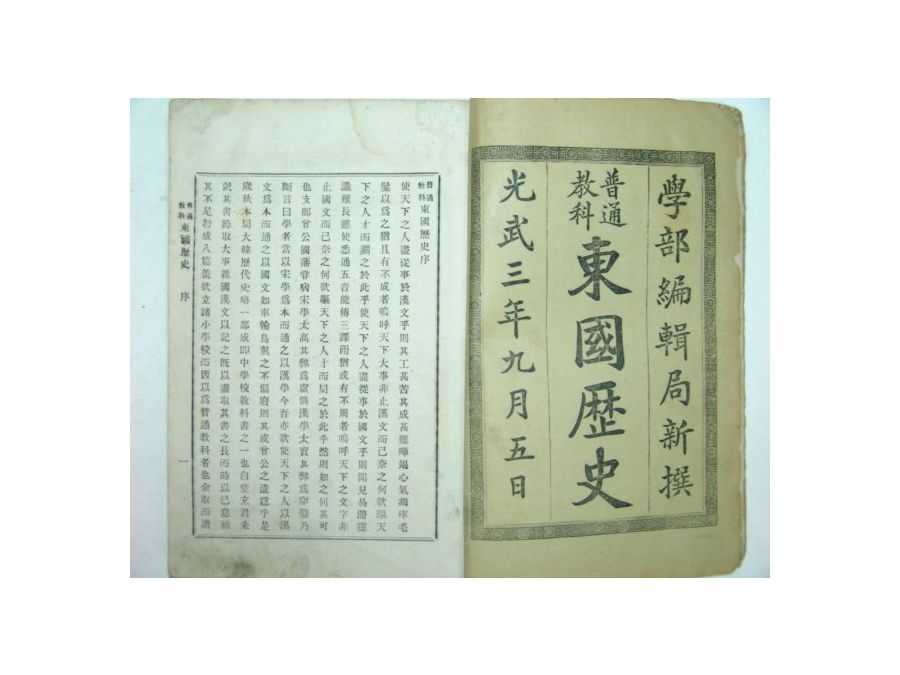 學部編輯局新撰
普通教科 東國歷史
光武三年九月五日
普通教科 東國歷史序
使天下之人盡從事於漢文乎則其工甚苦其成甚難殫竭心氣凋瘁毛
髮以爲之猶且有不成者嗚呼天下大事非止漢文而已奈之何欲驅天
下之人才而錮之於此乎使天下之人盡從事於國文乎則聞見易滯靈
識難長雖使悉通五音能傳三譯而猶或有不周者嗚呼天下之文字非
止國文而已奈之何欲驅天下之人才而局之於此乎然則如之何其可
也支那曾公國藩嘗病宋學太高其弊爲虛僞漢學太實其弊爲穿鑿乃
斷言曰學者當以宋學爲本而通之以漢學今吾亦欲使天下之人以漢
文爲本而通之以國文如車輪鳥翼之不偏廢則其或曾公之遺意乎是
歲秋本局大韓歷代史略一部成即中學校教科書之一也白堂玄君采
就其書節取大事雜國漢文以記之旣以盡取其書之長而時以己意補
其不足勒成八篇蓋欲立諸小學校而因以爲普通教科者也余取而讀
普通教科 東國歷史 序 一